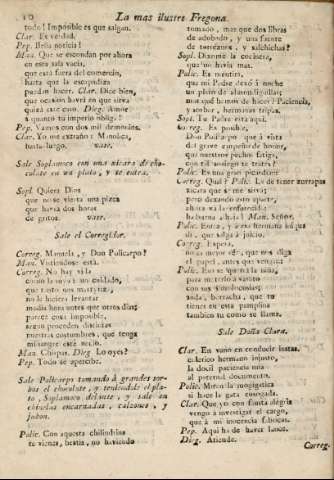 10 La mas ilustre Fregona.
todo! Imposible es que salgan.
Clar. Es verdad.
Pep. Bella noticia!
Man. Que se escondan por ahora
en esta sala vacía,
que está fuera del comercio,
hasta que la escapadiza
puedan hacer. Clar. Dice bien,
que ocasion havrá en que sirva
quizá este caso. Dieg. Amor!
á quánto tu imperio obliga!
Pep. Vamos con dos mil demonios.
Clar. Yo no extraño: Manolica,
hasta luego. vase.
Sale Soplamoco con una xícara de cho-
colate en un plato, y se entra.
Sopl. Quiera Dios
que no se vierta una pizca
que havrá dos horas
de gritos. vase.
Sale el Corregidor.
Correg. Manola, y Don Policarpo?
Man. Vistiendose está.
Correg. No hay vida
como la suya: mi cuidado,
que tanto nos martyriza,
no le hiciera levantar
media hora antes que otros dias;
parece cosa imposible,
segun proceden distintas
nuestras costumbres, que tenga
misangre este necio.
Man. Chispas. Dieg. Lo oyes?
Pep. Todo se apercibe.
Sale Policarpo tomando á grandes sor-
bos el chocolate, y teniendole el pla-
to, Soplamoco delante, y sale en
chinelas encarnadas, calzones, y
jubon.
Polic. Con aquesta chilindrina
te vienes, bestia, no haviendo
tomado, mas que dos libras
de adobado, y una fuente
de torreznos, y salchichas?
Sopl. Dixome la cocinera,
que no havia mas.
Polic. Es mentira,
que mi Padre dexó á noche
un plato de albondiguillas;
una qué hamos de hacer? Paciencia,
y sorber, hermanas tripas.
Sopl. Tu Padre está aquí.
Correg. Es posible,
Don Policarpo que á vista
del grave empeño de honor,
que nuestros pechos fatiga,
con tal sosiego te trates?
Polic. Es una gran picardia!
Correg. Qual? Polic. La de tener zurrapas
xícara que se me sirve;
pero dexando esto aparte,
ahora va la enfurecida
habarme ahila! Man. Señor.
Polic. Entra, y á mi hermana
di, que salga á juicio.
Correg. Espera,
no es mejor
el papel, antes que venga?
Polic. Eso se queria la niña,
para meterlo á varato
con sus
anda, borracha, que tu
tienes en esta pamplina
tambien tu como se llama.
Sale Doña Clara.
Clar. En vano en conducir instas,
colerico hermano injusto,
la docil paciencia mia
al paternal documento.
Polic. Miren la
si hace la gata ensogada.
Clar. Que yo con fausta alegría
vengo á investigar el cargo,
que á mi inocencia fabricas.
Pep. Aqui ha de haver lance.
Dieg. Atiende.
Correg.